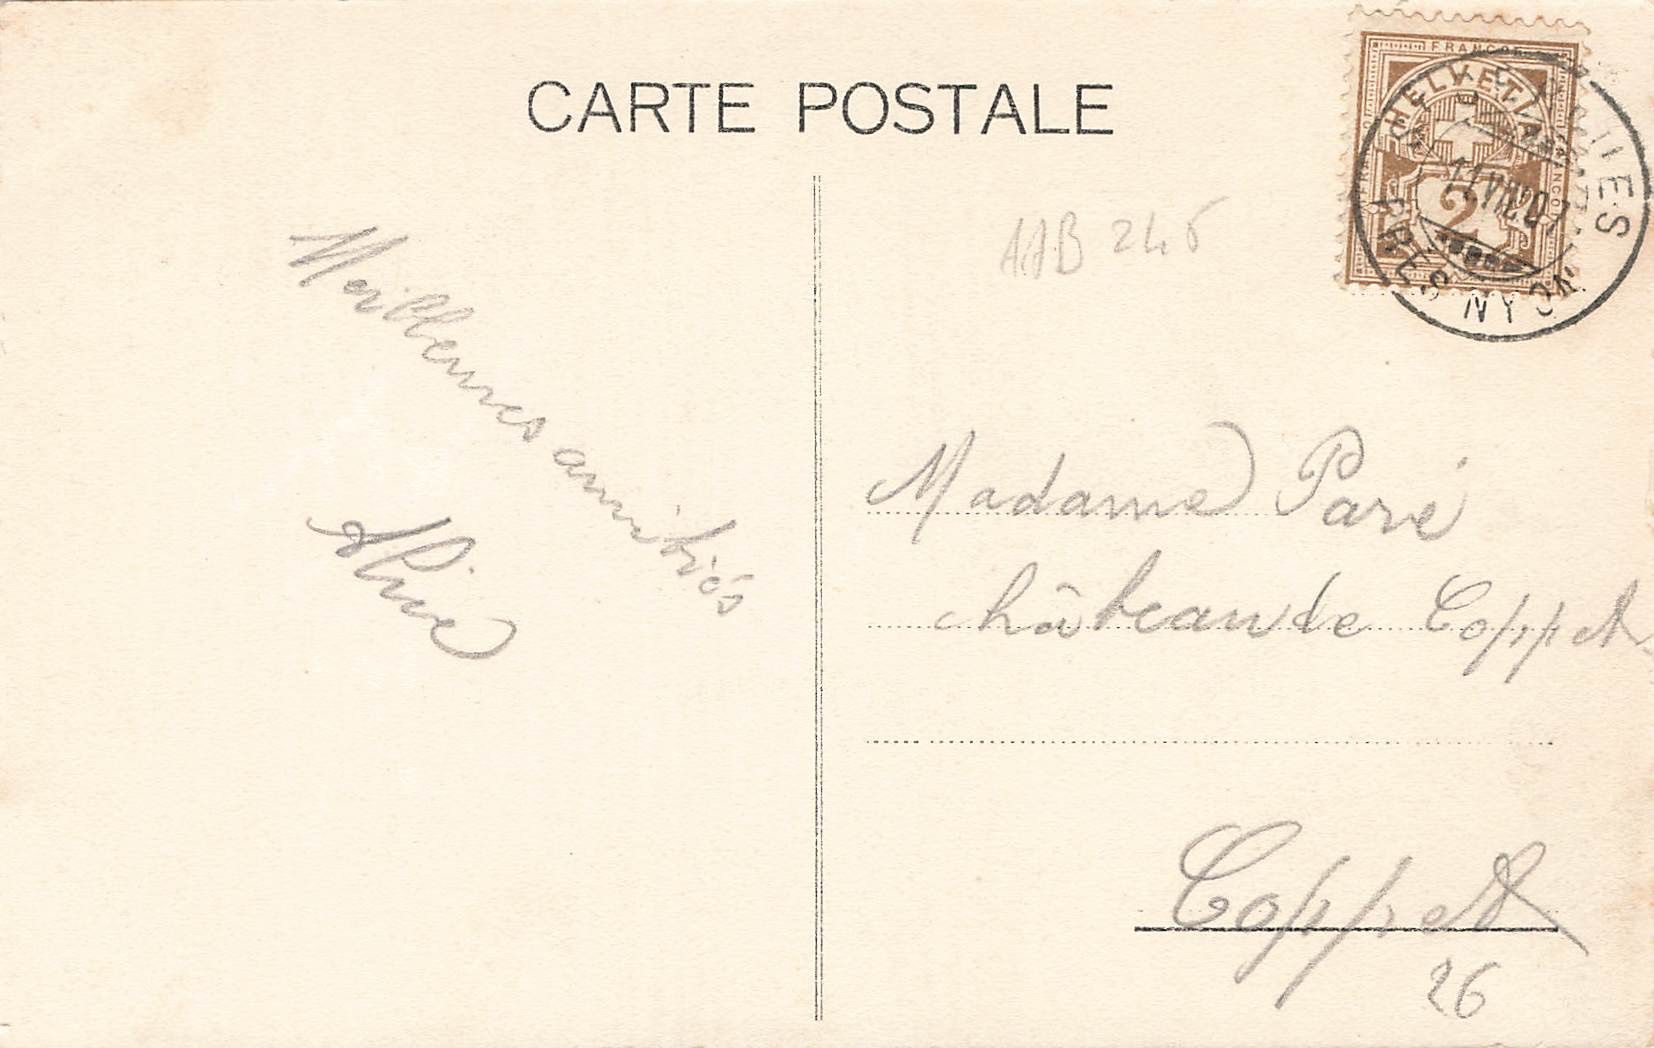 CARTE POSTALE
FRANCO
HELVETIA
2
11.VIII.07
PRES NYON
AAB 246
Meilleures amitiés
Alice
Madame Paré
Château de Coppet
Coppet
26